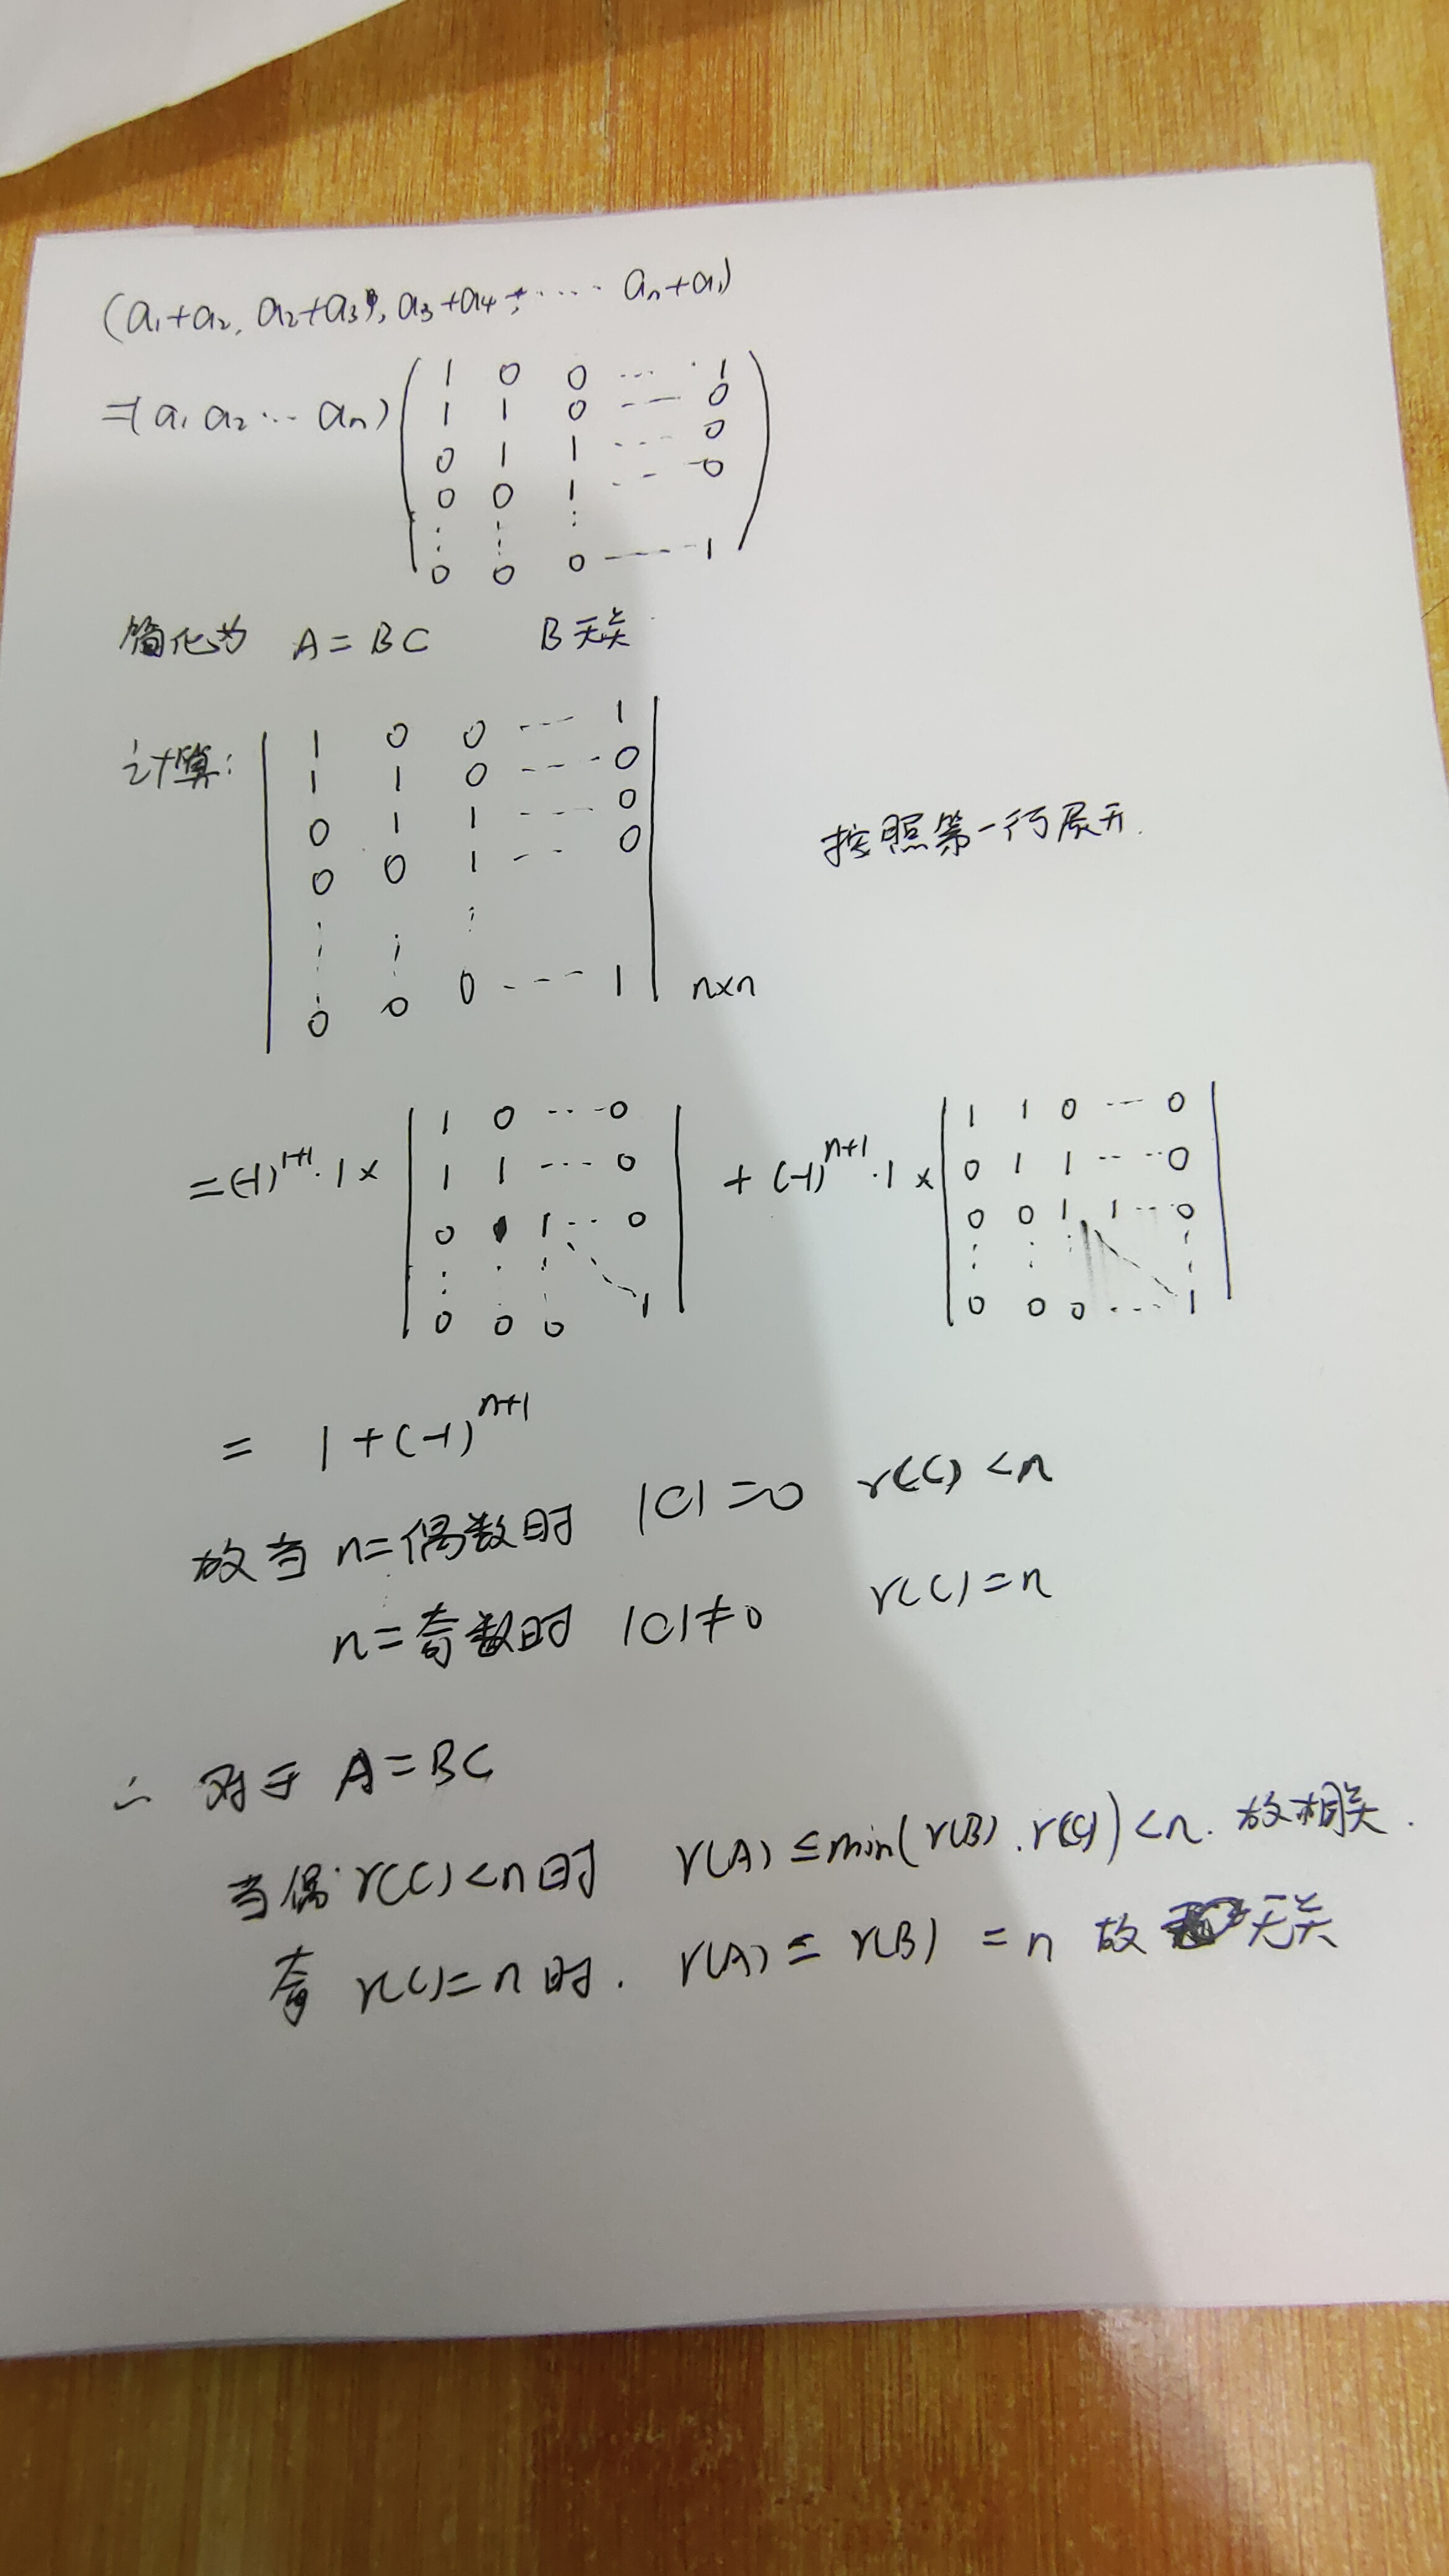 (a₁+a₂, a₂+a₃, a₃+a₄, ····· aₙ+a₁)
=(a₁ a₂ ··· aₙ)
1 0 0 ··· 1
1 1 0 --- 0
0 1 1 ---- 0
0 0 1 --- 0
⋮ ⋮ ⋮
0 0 0 —— 1
简化为 A=BC B无关
计算:
1 0 0 --- 1
1 1 0 ---- 0
0 1 1 ---- 0
0 0 1 -- 0
⋮ ⋮ ⋮
0 0 0 --- 1
n×n
按照第一行展开.
=(-1)¹⁺¹·1×
1 0 ··· 0
1 1 ---- 0
0 1 ·· 0
⋮ ⋮ ⋮
0 0 0 1
+(-1)ⁿ⁺¹·1×
1 1 0 --- 0
0 1 1 ---- 0
0 0 1 1 --- 0
⋮ ⋮ ⋮ ⋮
0 0 0 ---- 1
= 1+(-1)ⁿ⁺¹
故当 n=偶数时 |C|=0 r(C)<n
n=奇数时 |C|≠0 r(C)=n
∴ 对于 A=BC
当偶 r(C)<n时 r(A)≤min(r(B).r(C))<n. 故相关.
奇 r(C)=n时. r(A)=r(B)=n 故 无关